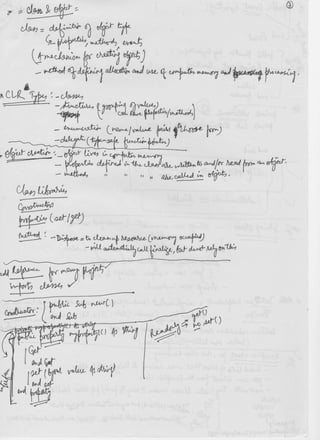 * = Class & Object =
class = definition of object type
Ex: properties, methods, events
(A mechanism for creating objects)
- method of defining allocation and use of computer memory and processing.
* CLR Types : - classes
- structures (grouping of values)
can have properties/methods)
- enumeration (name/value pairs to choose from)
- delegate (type-safe function pointer)
Object creation : - object lives in computer memory
- properties defined in the class are written to and/or read from an object.
- methods " " " " are called in objects.
Class libraries
Constructor
properties (set/get)
method : - Dispose = to cleanup resource (memory occupied)
- will automatically call finalize, but do not rely on this
add Reference for many projects
imports classes
Constructor : public sub new()
end sub
public property myproperty() As string
Get
end Get
set (byval value As string)
end set
end property
Readonly → get()
no set()